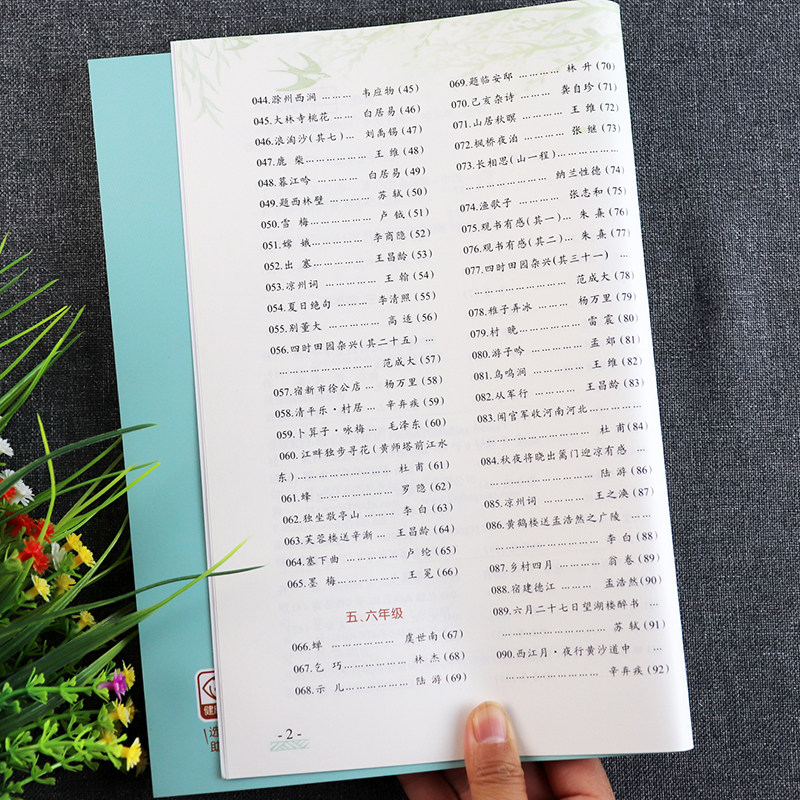 044.滁州西涧 ……… 韦应物(45)
045.大林寺桃花 …… 白居易(46)
046.浪淘沙(其七)… 刘禹锡(47)
047.鹿 柴……………… 王 维(48)
048.暮江吟 ………… 白居易(49)
049.题西林壁 ……… 苏 轼(50)
050.雪 梅……………… 卢 钺(51)
051.嫦 娥…………… 李商隐(52)
052.出 塞…………… 王昌龄(53)
053.凉州词 ………… 王 翰(54)
054.夏日绝句 ……… 李清照(55)
055.别董大 ………… 高 适(56)
056.四时田园杂兴(其二十五) …
……………………… 范成大(57)
057.宿新市徐公店 … 杨万里(58)
058.清平乐·村居 … 辛弃疾(59)
059.卜算子·咏梅 … 毛泽东(60)
060.江畔独步寻花(黄师塔前江水
东)……………………… 杜 甫(61)
061.蜂 ………………… 罗 隐(62)
062.独坐敬亭山 …… 李 白(63)
063.芙蓉楼送辛渐 … 王昌龄(64)
064.塞下曲 ………… 卢 纶(65)
065.墨 梅…………… 王 冕(66)
五、六年级
066.蝉 ……………… 虞世南(67)
067.乞 巧……………… 林 杰(68)
068.示 儿……………… 陆 游(69)
- 2 -
069.题临安邸 ………… 林 升(70)
070.己亥杂诗 ……… 龚自珍(71)
071.山居秋暝 ………… 王 维(72)
072.枫桥夜泊 ………… 张 继(73)
073.长相思(山一程)…………
………………… 纳兰性德(74)
074.渔歌子 ………… 张志和(75)
075.观书有感(其一)… 朱 熹(76)
076.观书有感(其二)… 朱 熹(77)
077.四时田园杂兴(其三十一) …
……………………… 范成大(78)
078.稚子弄冰 ……… 杨万里(79)
079.村 晚……………… 雷 震(80)
080.游子吟 …………… 孟 郊(81)
081.鸟鸣涧 …………… 王 维(82)
082.从军行 ………… 王昌龄(83)
083.闻官军收河南河北……………
……………………… 杜 甫(84)
084.秋夜将晓出篱门迎凉有感 …
……………………… 陆 游(86)
085.凉州词 ………… 王之涣(87)
086.黄鹤楼送孟浩然之广陵 ……
……………………… 李 白(88)
087.乡村四月 ………… 翁 卷(89)
088.宿建德江 ……… 孟浩然(90)
089.六月二十七日望湖楼醉书 …
……………………… 苏 轼(91)
090.西江月·夜行黄沙道中 ……
……………………… 辛弃疾(92)